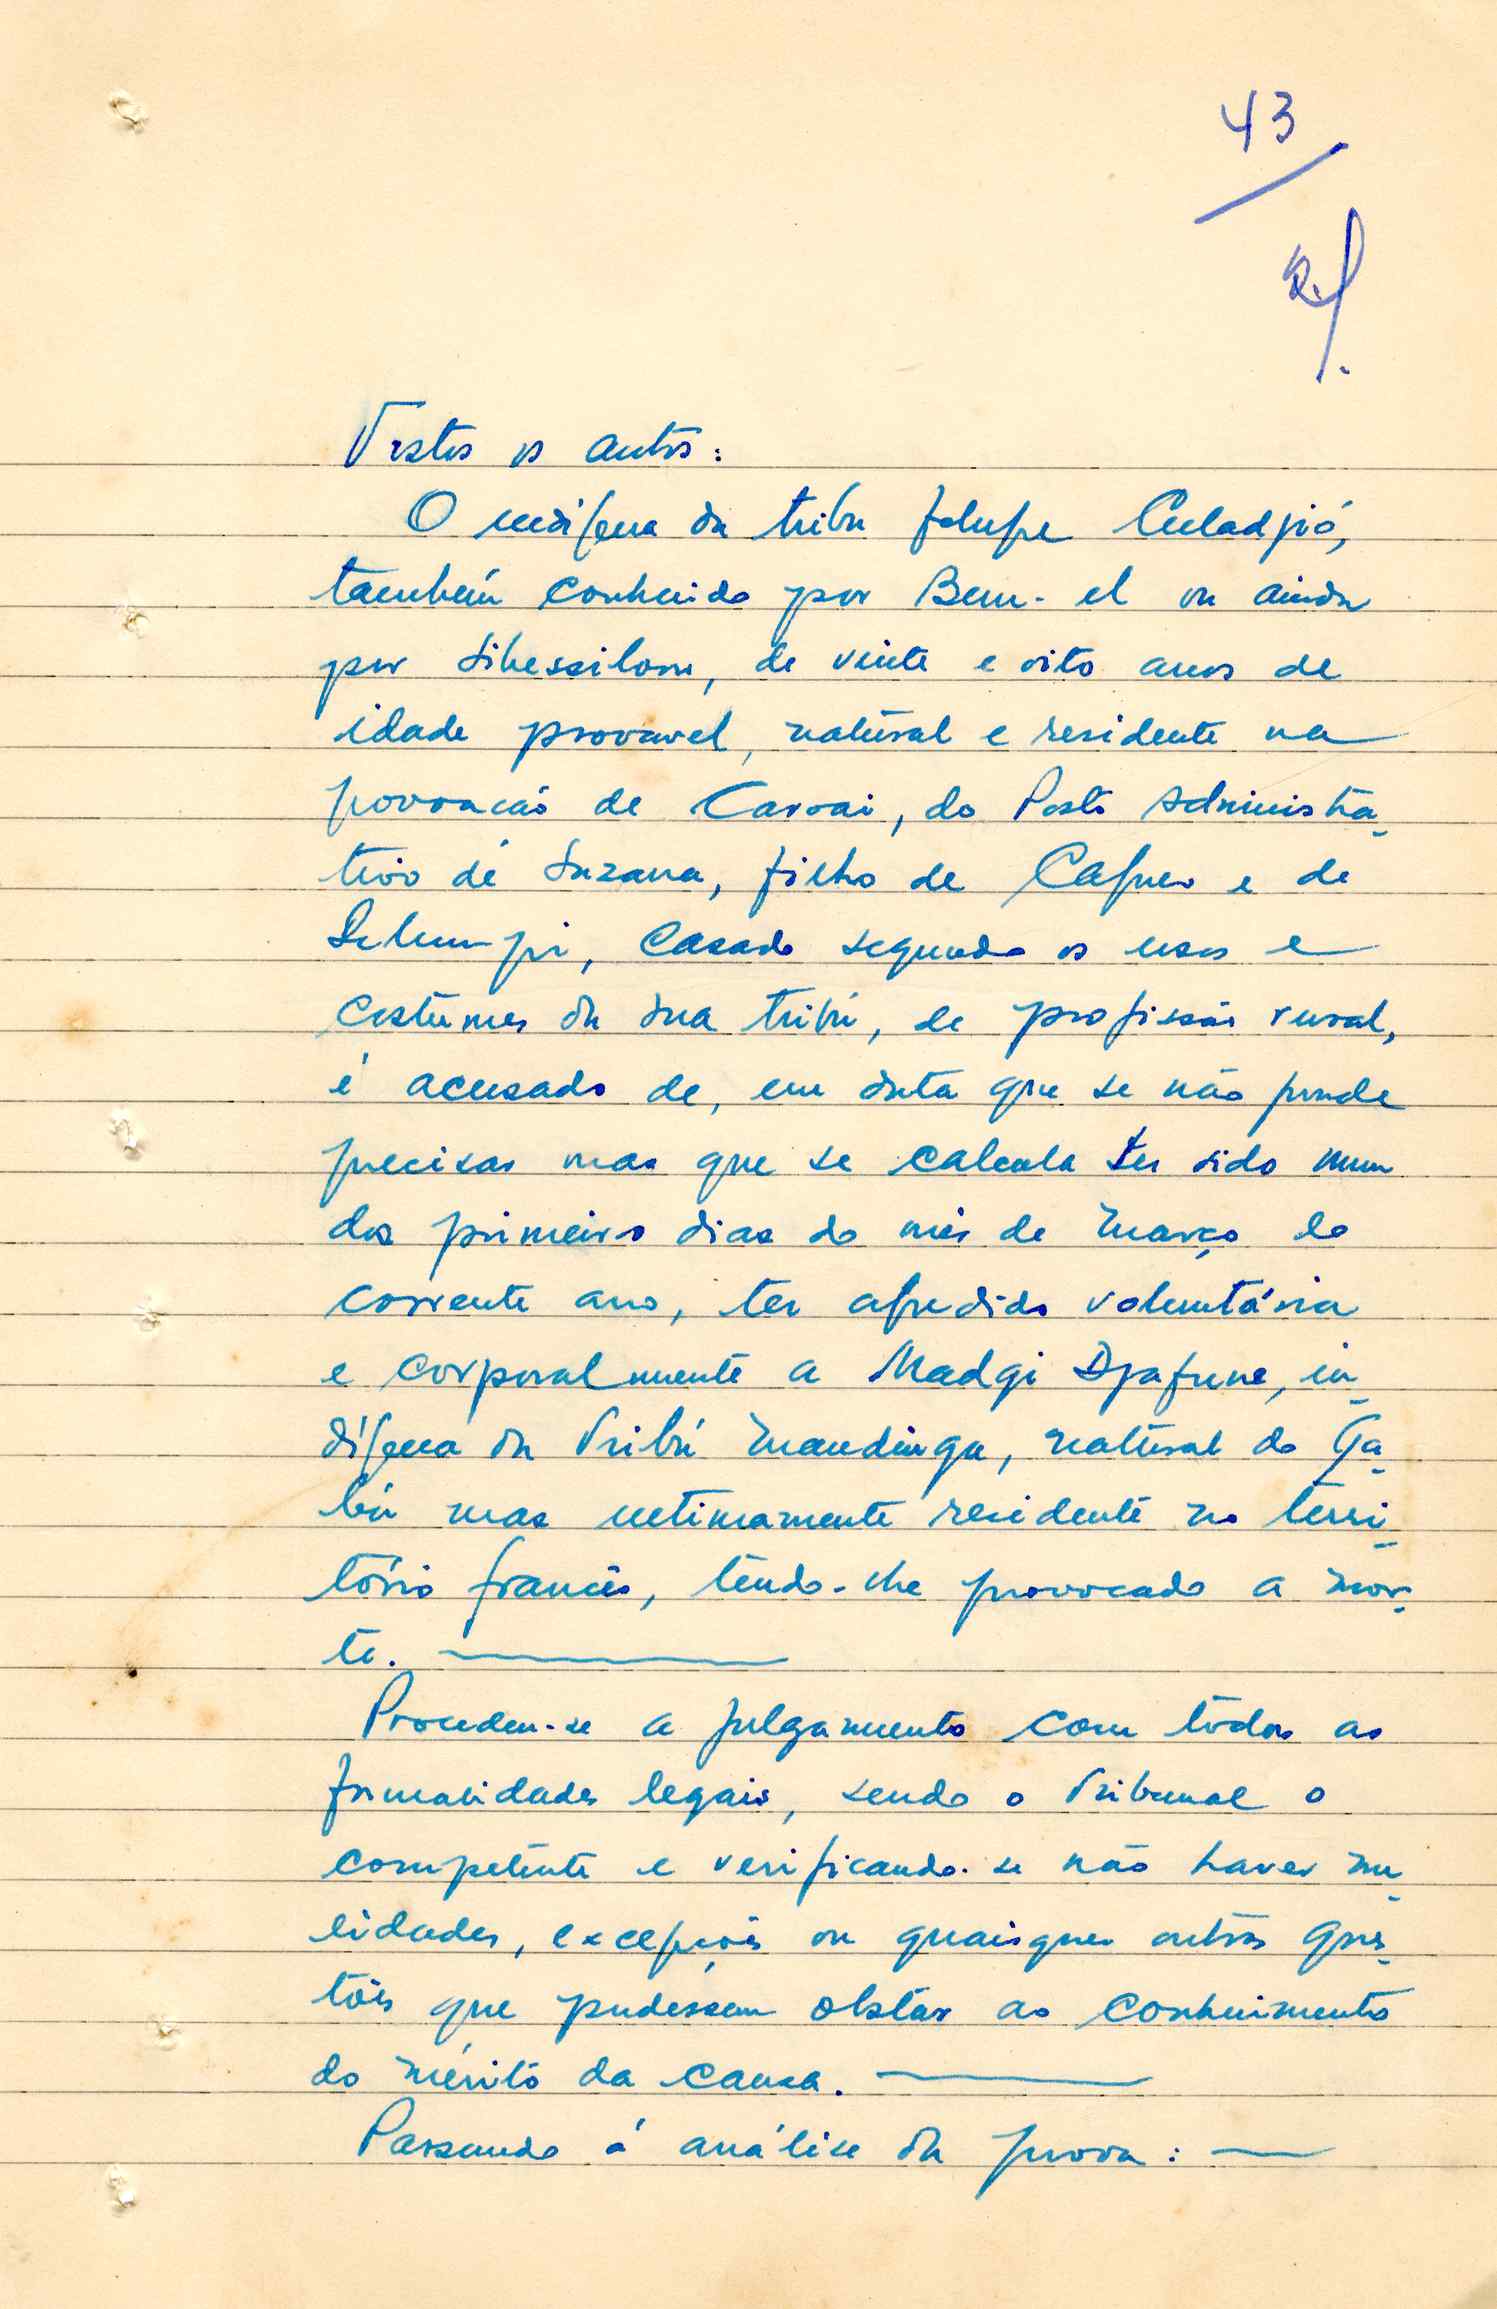 43
Vistos os autos:
O indígena da tribu felupe Culadjió,
também conhecido por Bem-el ou ainda
por Sihessilom, de vinte e oito anos de
idade provavel, natural e residente na
povoação de Caroai, do Posto Administra-
tivo de Suzana, filho de e de
casado segundo os usos e
costumes da sua tribú, de profissão rural,
é acusado de, em data que se não poude
precisar mas que se calcula ter sido num
dos primeiros dias do mês de março do
corrente ano, ter agredido voluntária
e corporalmente a Madgi Djafune, in-
dígena da tribú mandinga, natural do Ga-
bú mas ultimamente residente no terri-
tório francês, tendo-lhe provocado a mor-
te.
Procedeu-se a julgamento com todas as
formalidades legais, sendo o Tribunal o
competente e verificando-se não haver nu-
lidades, excepções ou quaisquer outras ques-
tões que pudessem obstar ao conhecimento
do mérito da causa.
Passando á análise da prova: